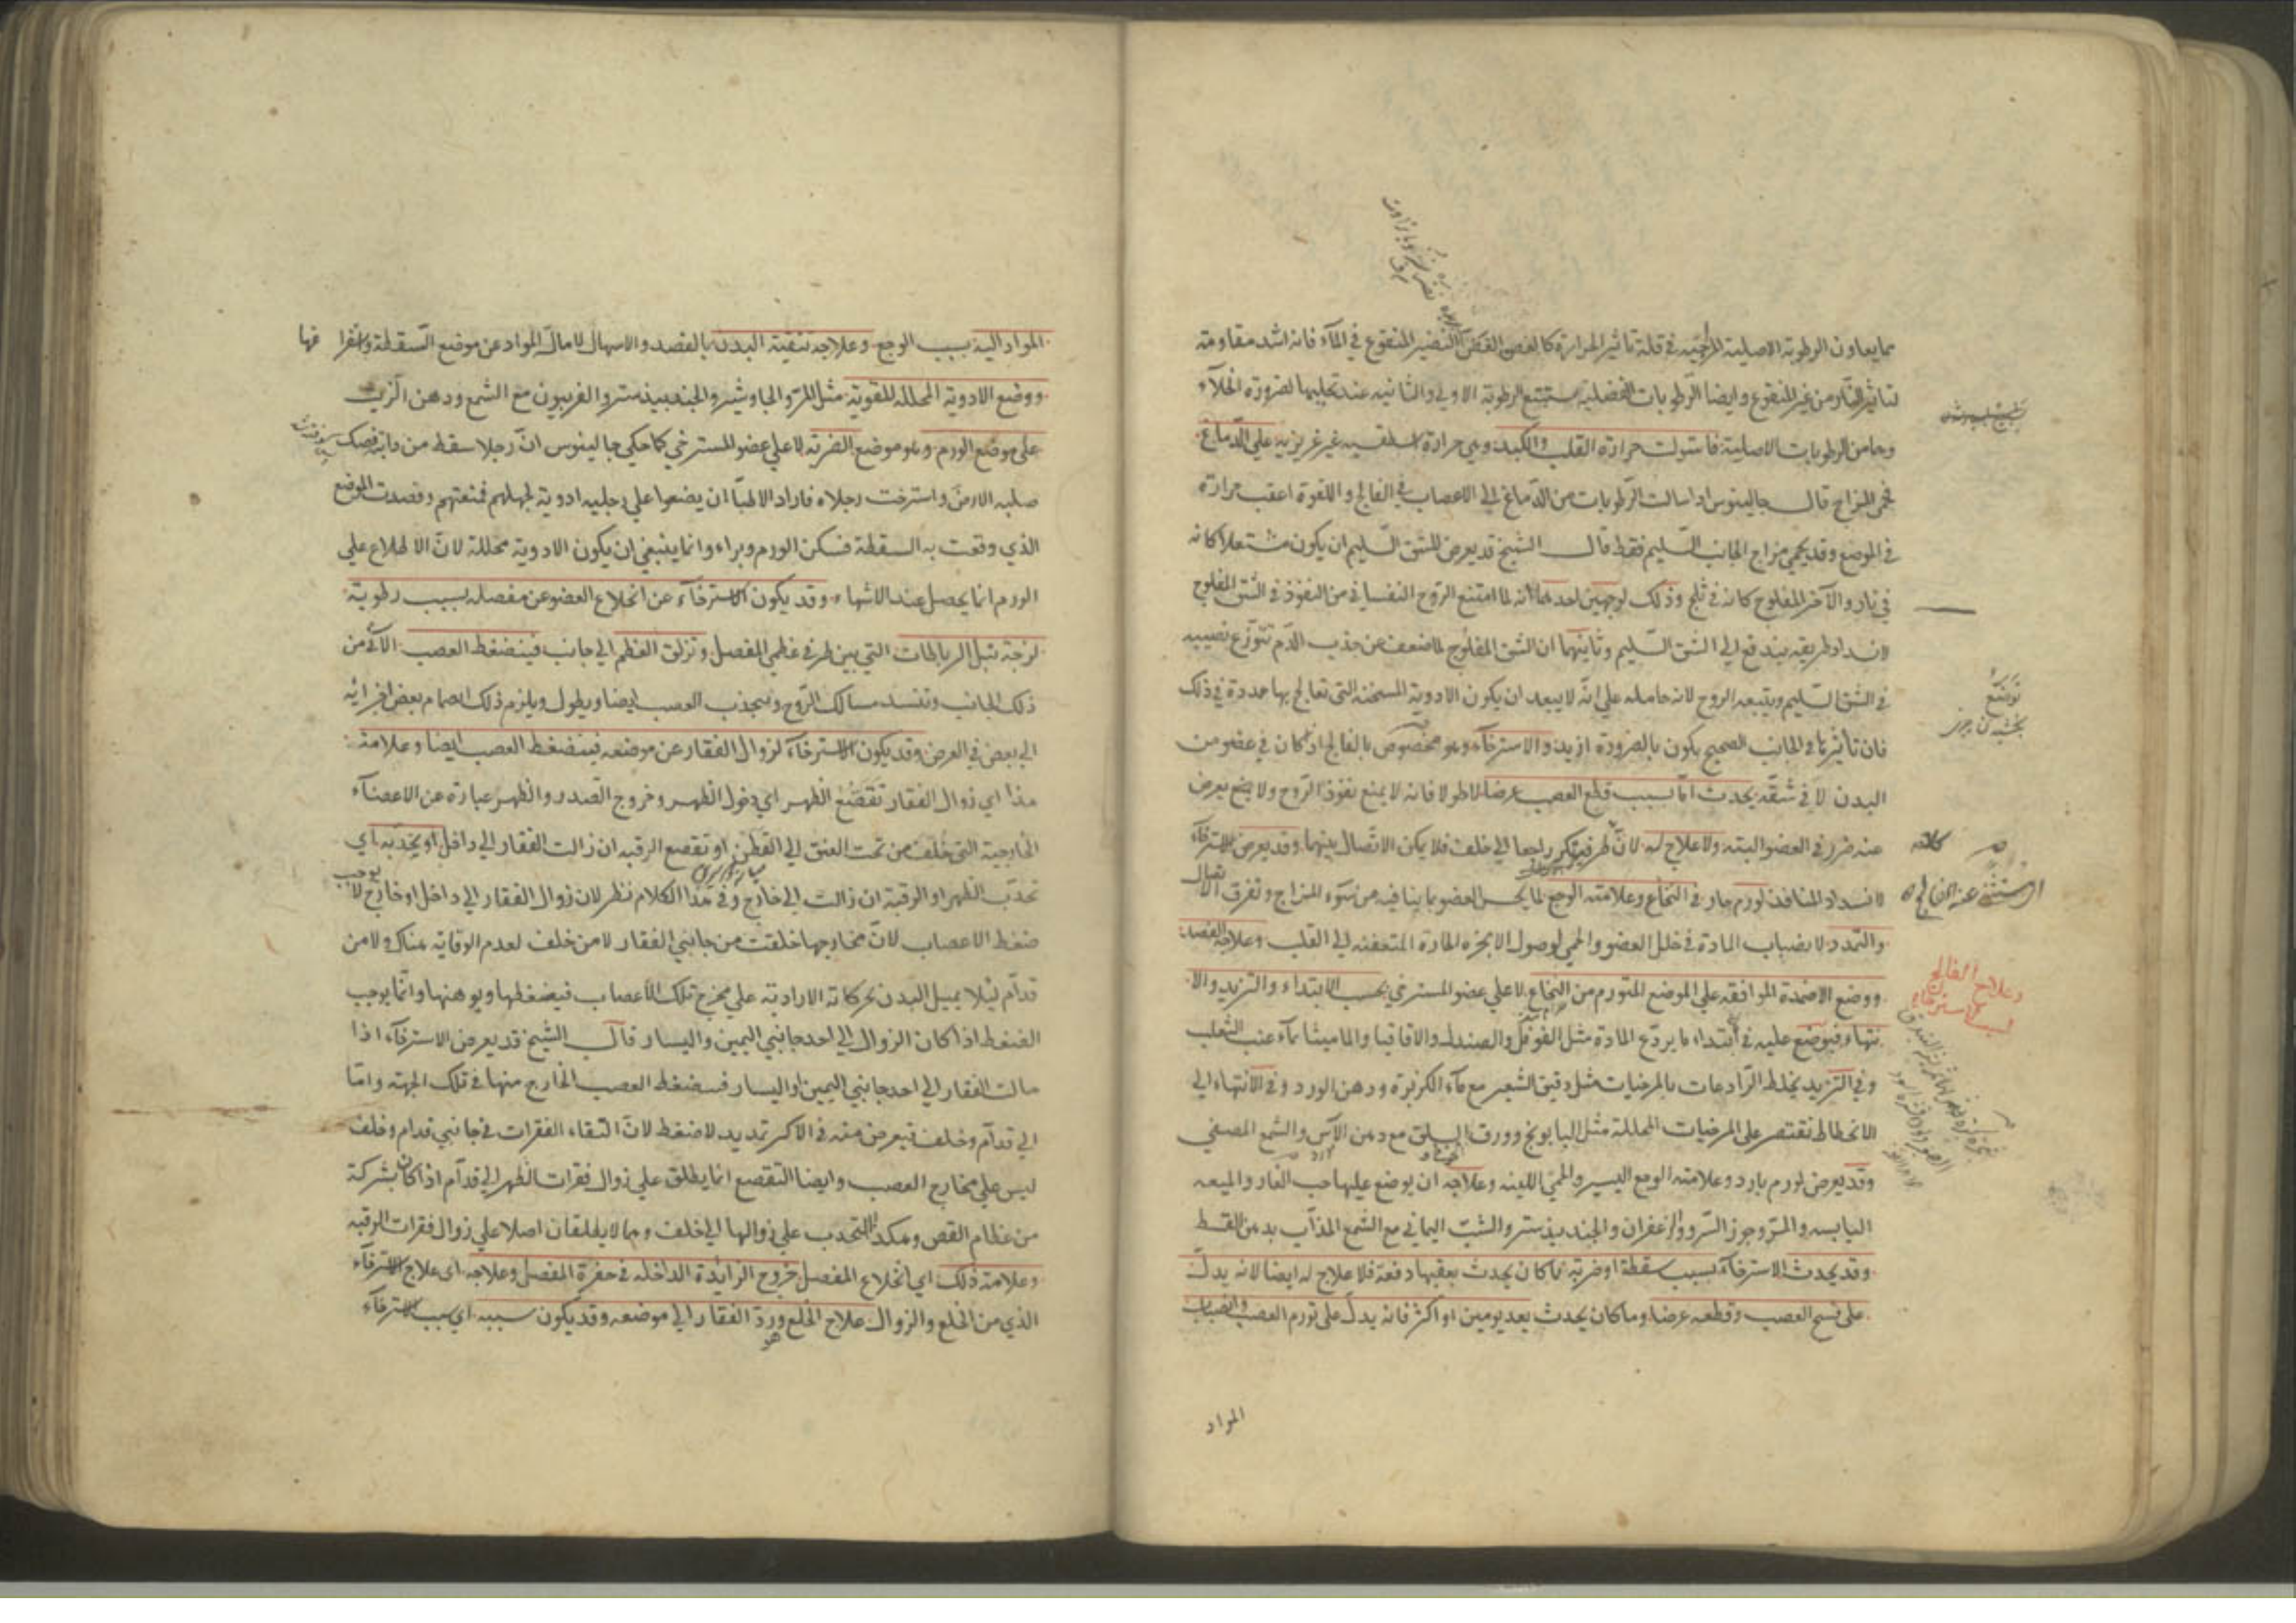 مما يعاون الرطوبة الاصلية المزاجية في قلة تاثير الحرارة كالغصن الغض النضير المنقوع في المآء فانه اشد مقاومة
لتاثير النار من غير المنقوع وايضا الرطوبات الفضلية يستتبع الرطوبة الاولي والثانية عند تحليلها لضرورة الخلآء
وهما من الرطوبات الاصلية فاستولت حرارة القلب والكبد وهي حرارة غير غريزية علي الدماغ
فحمي المزاج قال جالينوس اذا سالت الرطوبات من الدماغ الي الاعصاب في الفالج واللقوة اعقب حرارة
في الموضع وقد يحمي مزاج الجانب السليم فقط قال الشيخ قد يعرض للشق السليم ان يكون مشتعلا كانه
في نار والآخر المفلوج كانه في ثلج وذلك لوجهين احدهما انه لما امتنع الروح النفساني من النفوذ في الشق المفلوج
لانسداد طريقه يندفع الي الشق السليم وثانيهما ان الشق المفلوج لما ضعف عن جذب الدم تتوزع نصيبه
في الشق السليم ويتبعه الروح لانه حامله علي انه لا يبعد ان يكون الادوية المسخنة التي تعالج بها ممددة في ذلك
فان تاثيرها في الجانب الصحيح يكون بالضرورة ازيد والاسترخآء وهو مخصوص بالفالج اذا كان في عضو من
البدن لا في شقه يحدث اما بسبب قطع العصب عرضا لا طولا فانه لا يمنع نفوذ الروح ولا يعرض
عنه ضرر في العضو البته ولا علاج له لان طرفيه راجعا الي خلف فلا يمكن الاتصال بينهما وقد يعرض الاسترخآء
لانسداد المنافذ لورم حار في النخاع وعلامته الوجع لما يحس العضو بما ينافيه من سوء المزاج وتفرق الاتصال
والتمدد لانصباب المادة في خلل العضو والحمي لوصول الابخرة الحارة المتعفنة الي القلب وعلاجه الفصد
ووضع الاضمدة الموافقة علي الموضع المتورم من النخاع لا علي عضو المسترخي بحسب الابتداء والتزيد والا
نتهاء فيوضع عليه في ابتداء ما يردع المادة مثل الفوفل والصندل والاقاقيا والماميثا بمآء عنب الثعلب
وفي التزيد يخلط الرادعات بالمرخيات مثل دقيق الشعير مع مآء الكزبرة ودهن الورد وفي الانتهاء الي
الانحطاط نقتصر علي المرخيات المحللة مثل البابونج وورق السلق مع دهن الآس والشمع المصفي
وقد يعرض لورم بارد وعلامته الوجع اليسير والحمي اللينة وعلاجه ان يوضع عليها حب الغار والميعه
اليابسه والمر وجوز السرو والزعفران والجندبيدستر والشبت اليماني مع الشمع المذاب بدهن القسط
وقد يحدث الاسترخآء بسبب سقطة او ضربة فما كان يحدث بعقبها دفعة فلا علاج له ايضا لانه يدل
علي العصب وقطعه عرضا وما كان يحدث بعد يومين او اكثر فانه يدل علي تورم العصب وانصباب
المواد
توضع
كلامه
وعلاج الفالج
المواد اليه بسبب الوجع وعلاجه تنقية البدن بالفصد والاسهال لامالة المواد عن موضع السقطة
ووضع الادوية المحللة المقوية مثل المر والجاوشير والجندبيدستر والفربيون مع الشمع ودهن الزيت
علي موضع الورم وهو موضع الضربة لا علي عضو المسترخي كما حكي جالينوس ان رجلا سقط من دابته
صلبه الارض واسترخت رجلاه فاراد الاطبآ ان يضعوا علي رجليه ادوية لجهلهم فمنعتهم وقصدت الموضع
الذي وقعت به السقطة فسكن الورم وبراء وانما ينبغي ان يكون الادوية محللة لان الاطلاع علي
الورم انما يحصل عند الانتهاء وقد يكون الاسترخآء عن انخلاع العضو عن مفصله بسبب رطوبة
لزجة تبل الرباطات التي بين طرفي عظمي المفصل وتزلق العظم الي جانب فينضغط العصب الآتي من
ذلك الجانب وتنسد مسالك الروح وينجذب العصب ايضا ويطول ويلزم ذلك انضمام بعض اجزائه
الي بعض في العرض وقد يكون الاسترخآء لزوال الفقار عن موضعه فينضغط العصب ايضا وعلامة
هذا اي زوال الفقار تقصع الظهر اي دخول الظهر وخروج الصدر والظهر عبارة عن الاعضآء
الخارجية التي خلف من تحت العنق الي القطن او تقصع الرقبه ان زالت الفقار الي داخل او تحدبه اي
تحدب الظهر او الرقبة ان زالت الي خارج وفي هذا الكلام نظر لان زوال الفقار الي داخل او خارج لا يوجب
ضغط الاعصاب لان مخارجها خلقت من جانبي الفقار لا من خلف لعدم الوقاية هناك ولا من
قدام ليلا يميل البدن بحركاته الارادية علي مخرج تلك الاعصاب فيضغطها ويوهنها وانما يوجب
الضغط اذا كان الزوال الي احد جانبي اليمين واليسار قال الشيخ قد يعرض الاسترخآء اذا
مالت الفقار الي احد جانبي اليمين او اليسار فيضغط العصب الخارج منها في تلك الجهة واما
الي قدام وخلف فيعرض منه في الاكثر تمديد لا ضغط لان التقاء الفقرات في جانبي قدام وخلف
ليس علي مخارج العصب وايضا التقصع انما يطلق علي زوال فقرات الظهر الي قدام اذا كان بشركة
من عظام القص وهكذا التحدب علي زوالها الي خلف وهما لا يطلقان اصلا علي زوال فقرات الرقبه
وعلامة ذلك اي انخلاع المفصل خروج الزائدة الداخلة في حفرة المفصل وعلاجه اي علاج الاسترخآء
الذي من الخلع والزوال علاج الخلع ورد الفقار الي موضعه وقد يكون سببه اي سبب الاسترخآء